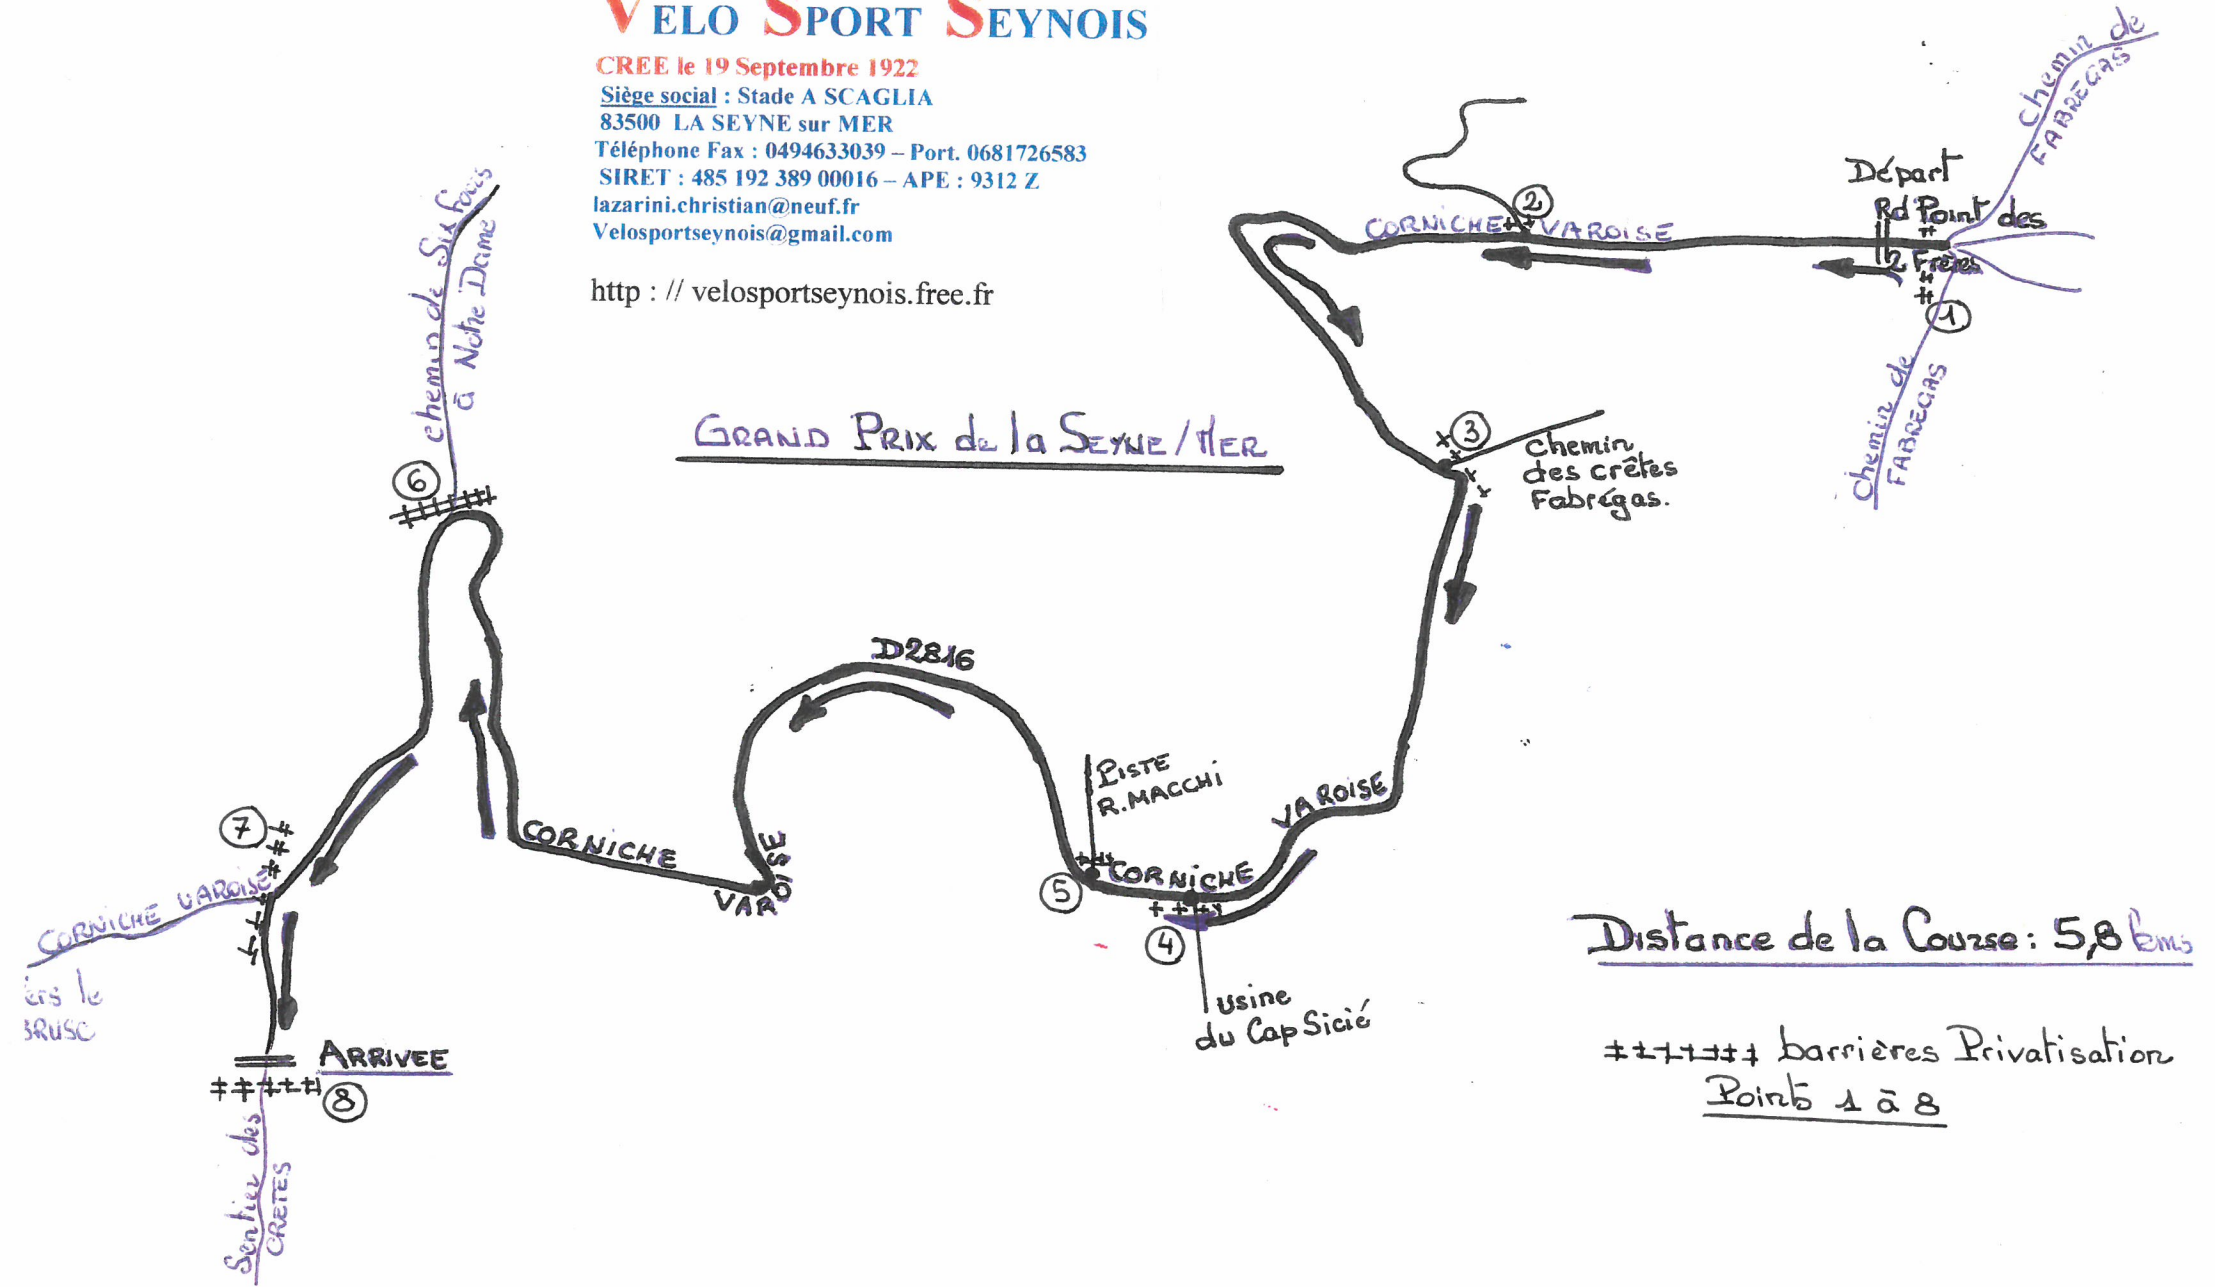 VELO SPORT SEYNOIS
CREE le 19 Septembre 1922
Siège social : Stade A SCAGLIA
83500 LA SEYNE sur MER
Téléphone Fax : 0494633039 – Port. 0681726583
SIRET : 485 192 389 00016 – APE : 9312 Z
lazarini.christian@neuf.fr
Velosportseynois@gmail.com
http : // velosportseynois.free.fr
chemin de
FABREGAS
Départ
Rd Point des
2 Frères
1
chemin de
FABREGAS
2
CORNICHE VAROISE
3
chemin
des crêtes
Fabrégas.
GRAND PRIX de la SEYNE/MER
chemin de Six fours
à Notre Dame
6
D2816
PISTE
R.MACCHI
VAROISE
CORNICHE
5
4
usine
du Cap Sicié
CORNICHE
VAROISE
7
CORNICHE VAROISE
ers le
BRUSC
ARRIVEE
8
Sentier des
CRETES
Distance de la Course : 5,8 kms
+++++++ barrières Privatisation
Points 1 à 8